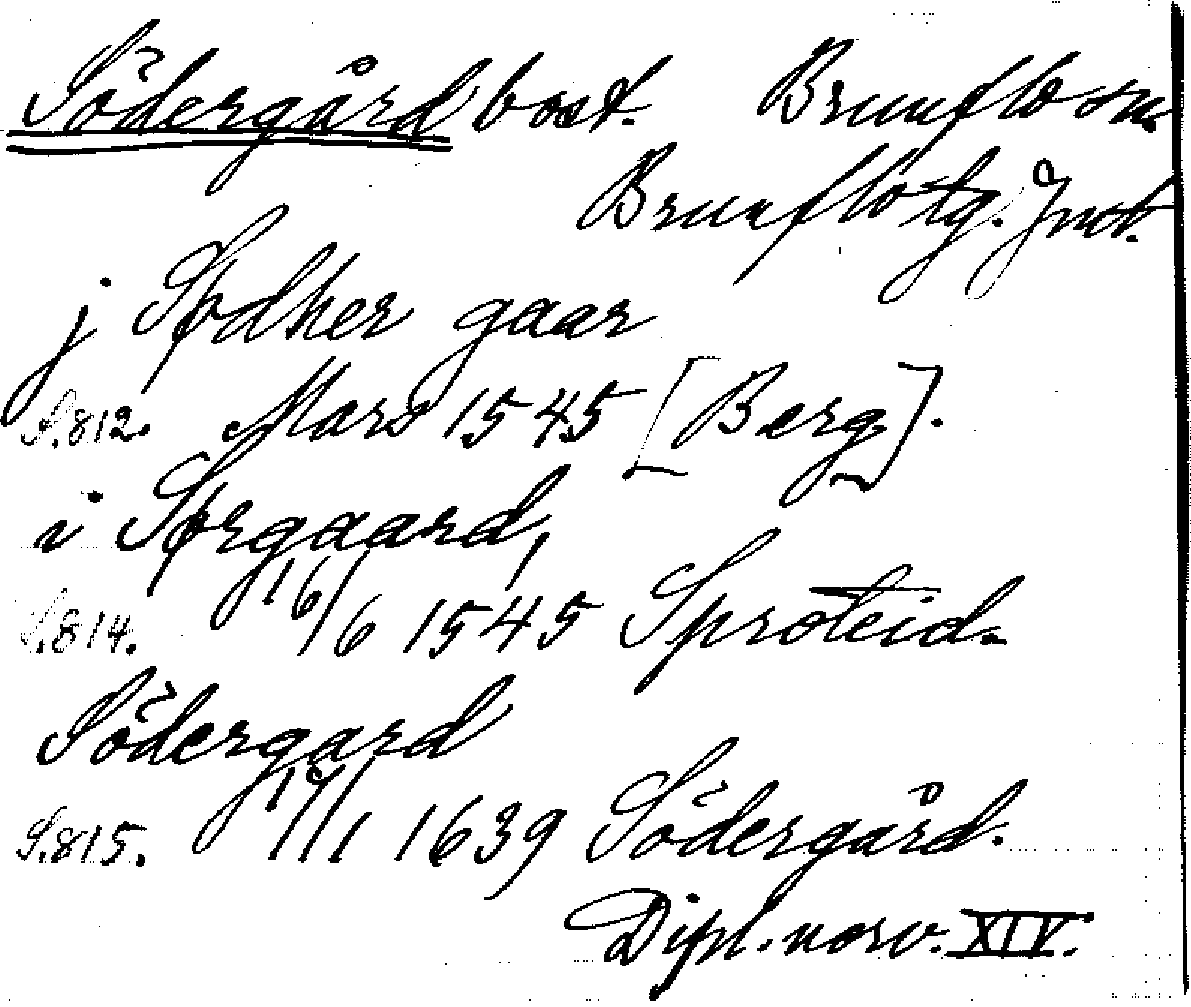 Södergård bost. Brunflo sn.
Brunflo tg. Jmt.
j Sødher gaar
S.812. Mars 1545 [Berg].
i Sørgaard,
S.814. 16/6 1545 Sproteid.
Södergard
S.815. 19/1 1639 Södergård.
Dipl. norv. XIV.